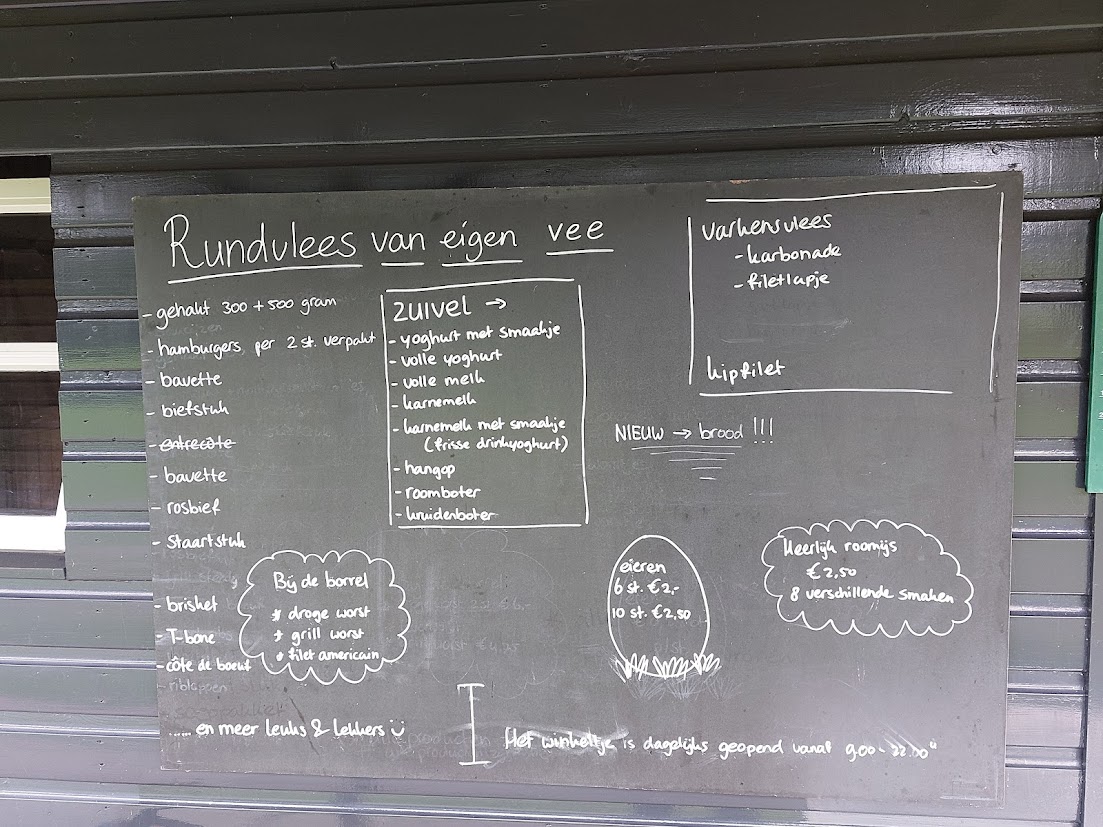 Rundvlees van eigen vee
- gehakt 300 + 500 gram
- hamburgers per 2 st. verpakt
- bavette
- biefstuk
- entrecôte
- bavette
- rosbief
- staartstuk
- brisket
- T-bone
- côte de boeuf
- riblappen
...... en meer leuks & lekkers
ZUIVEL →
- yoghurt met smaakje
- volle yoghurt
- volle melk
- karnemelk
- karnemelk met smaakje
(frisse drinkyoghurt)
- hangop
- roomboter
- kruidenboter
Bij de borrel
* droge worst
* grill worst
* filet americain
varkensvlees
- karbonade
- filetlapje
kipfilet
NIEUW → brood !!!
eieren
6 st. € 2,-
10 st. € 2,50
Heerlijk roomijs
€ 2,50
8 verschillende smaken
Het winkeltje is dagelijks geopend vanaf 9.00 - 22.00 u